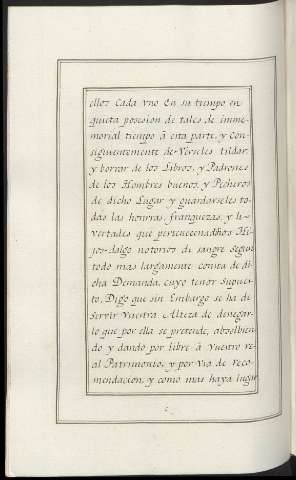 ellos Cada vno En su tiempo en
quieta posesion de tales de inme-
morial tiempo á esta parte, y Con-
siguientemente de Verseles tildar,
y borrar de los Libros, y Padrones
de los Hombres buenos, y Pecheros
de dicho Lugar y guardarseles to-
das las honrras, franquezas, y li-
vertades que pertenecen adhõs Hi-
jos-dalgo notorios de sangre segun
todo mas largamente consta de di-
cha Demanda, cuyo tenor Supues-
to, Digo que sin Embargo se ha de
Servir Vuestra Alteza de denegar
lo que por ella se pretende, absolbien-
do y dando por libre á Vuestro re-
al Patrimonio, y por via de reco-
mendacion, y como mas haya lugar